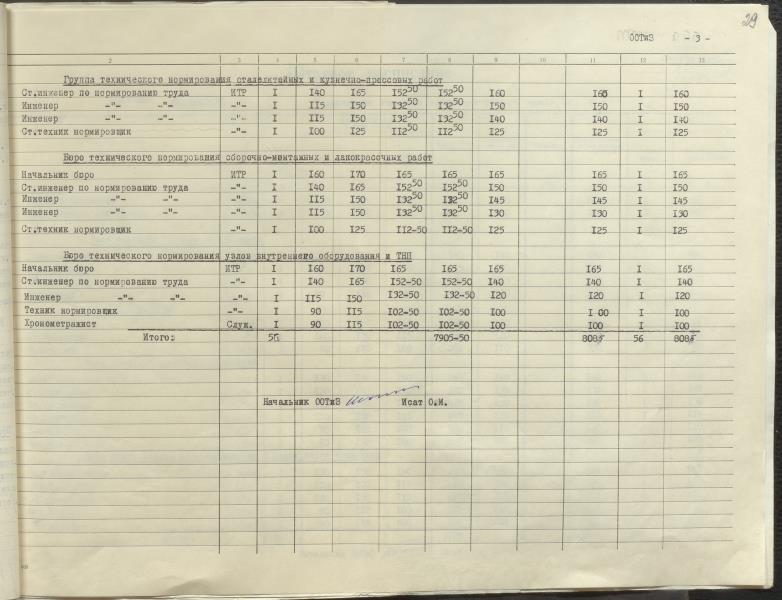 29
ООТиЗ - 3 -
2 3 4 5 6 7 8 9 10 11 12 13
Группа технического нормирования сталелктейных и кузнечно-прессовых работ
Ст.инженер по нормированию труда ИТР I I40 I65 I52 50 I52 50 I60 I60 I I60
Инженер -"- -"- -"- I II5 I50 I32 50 I32 50 I50 I50 I I50
Инженер -"- -"- -"- I II5 I50 I32 50 I32 50 I40 I40 I I40
Ст.техник нормировщик -"- I I00 I25 II2 50 II2 50 I25 I25 I I25
Бюро технического нормирования сборочно-монтажных и лакокрасочных работ
Начальник бюро ИТР I I60 I70 I65 I65 I65 I65 I I65
Ст.инженер по нормированию труда -"- I I40 I65 I52 50 I52 50 I50 I50 I I50
Инженер -"- -"- -"- I II5 I50 I32 50 I32 50 I45 I45 I I45
Инженер -"- -"- -"- I II5 I50 I32 50 I32 50 I30 I30 I I30
Ст.техник нормировщик -"- I I00 I25 II2-50 II2-50 I25 I25 I I25
Бюро технического нормирования узлов внутреннего оборудования и ТНП
Начальник бюро ИТР I I60 I70 I65 I65 I65 I65 I I65
Ст.инженер по нормированию труда -"- I I40 I65 I52-50 I52-50 I40 I40 I I40
Инженер -"- -"- -"- I II5 I50 I32-50 I32-50 I20 I20 I I20
Техник нормировщик -"- I 90 II5 I02-50 I02-50 I00 I 00 I I00
Хронометражист Служ. I 90 II5 I02-50 I02-50 I00 I00 I I00
Итого: 7905-50 8085 56 8085
Начальник ООТиЗ Исат О.М.